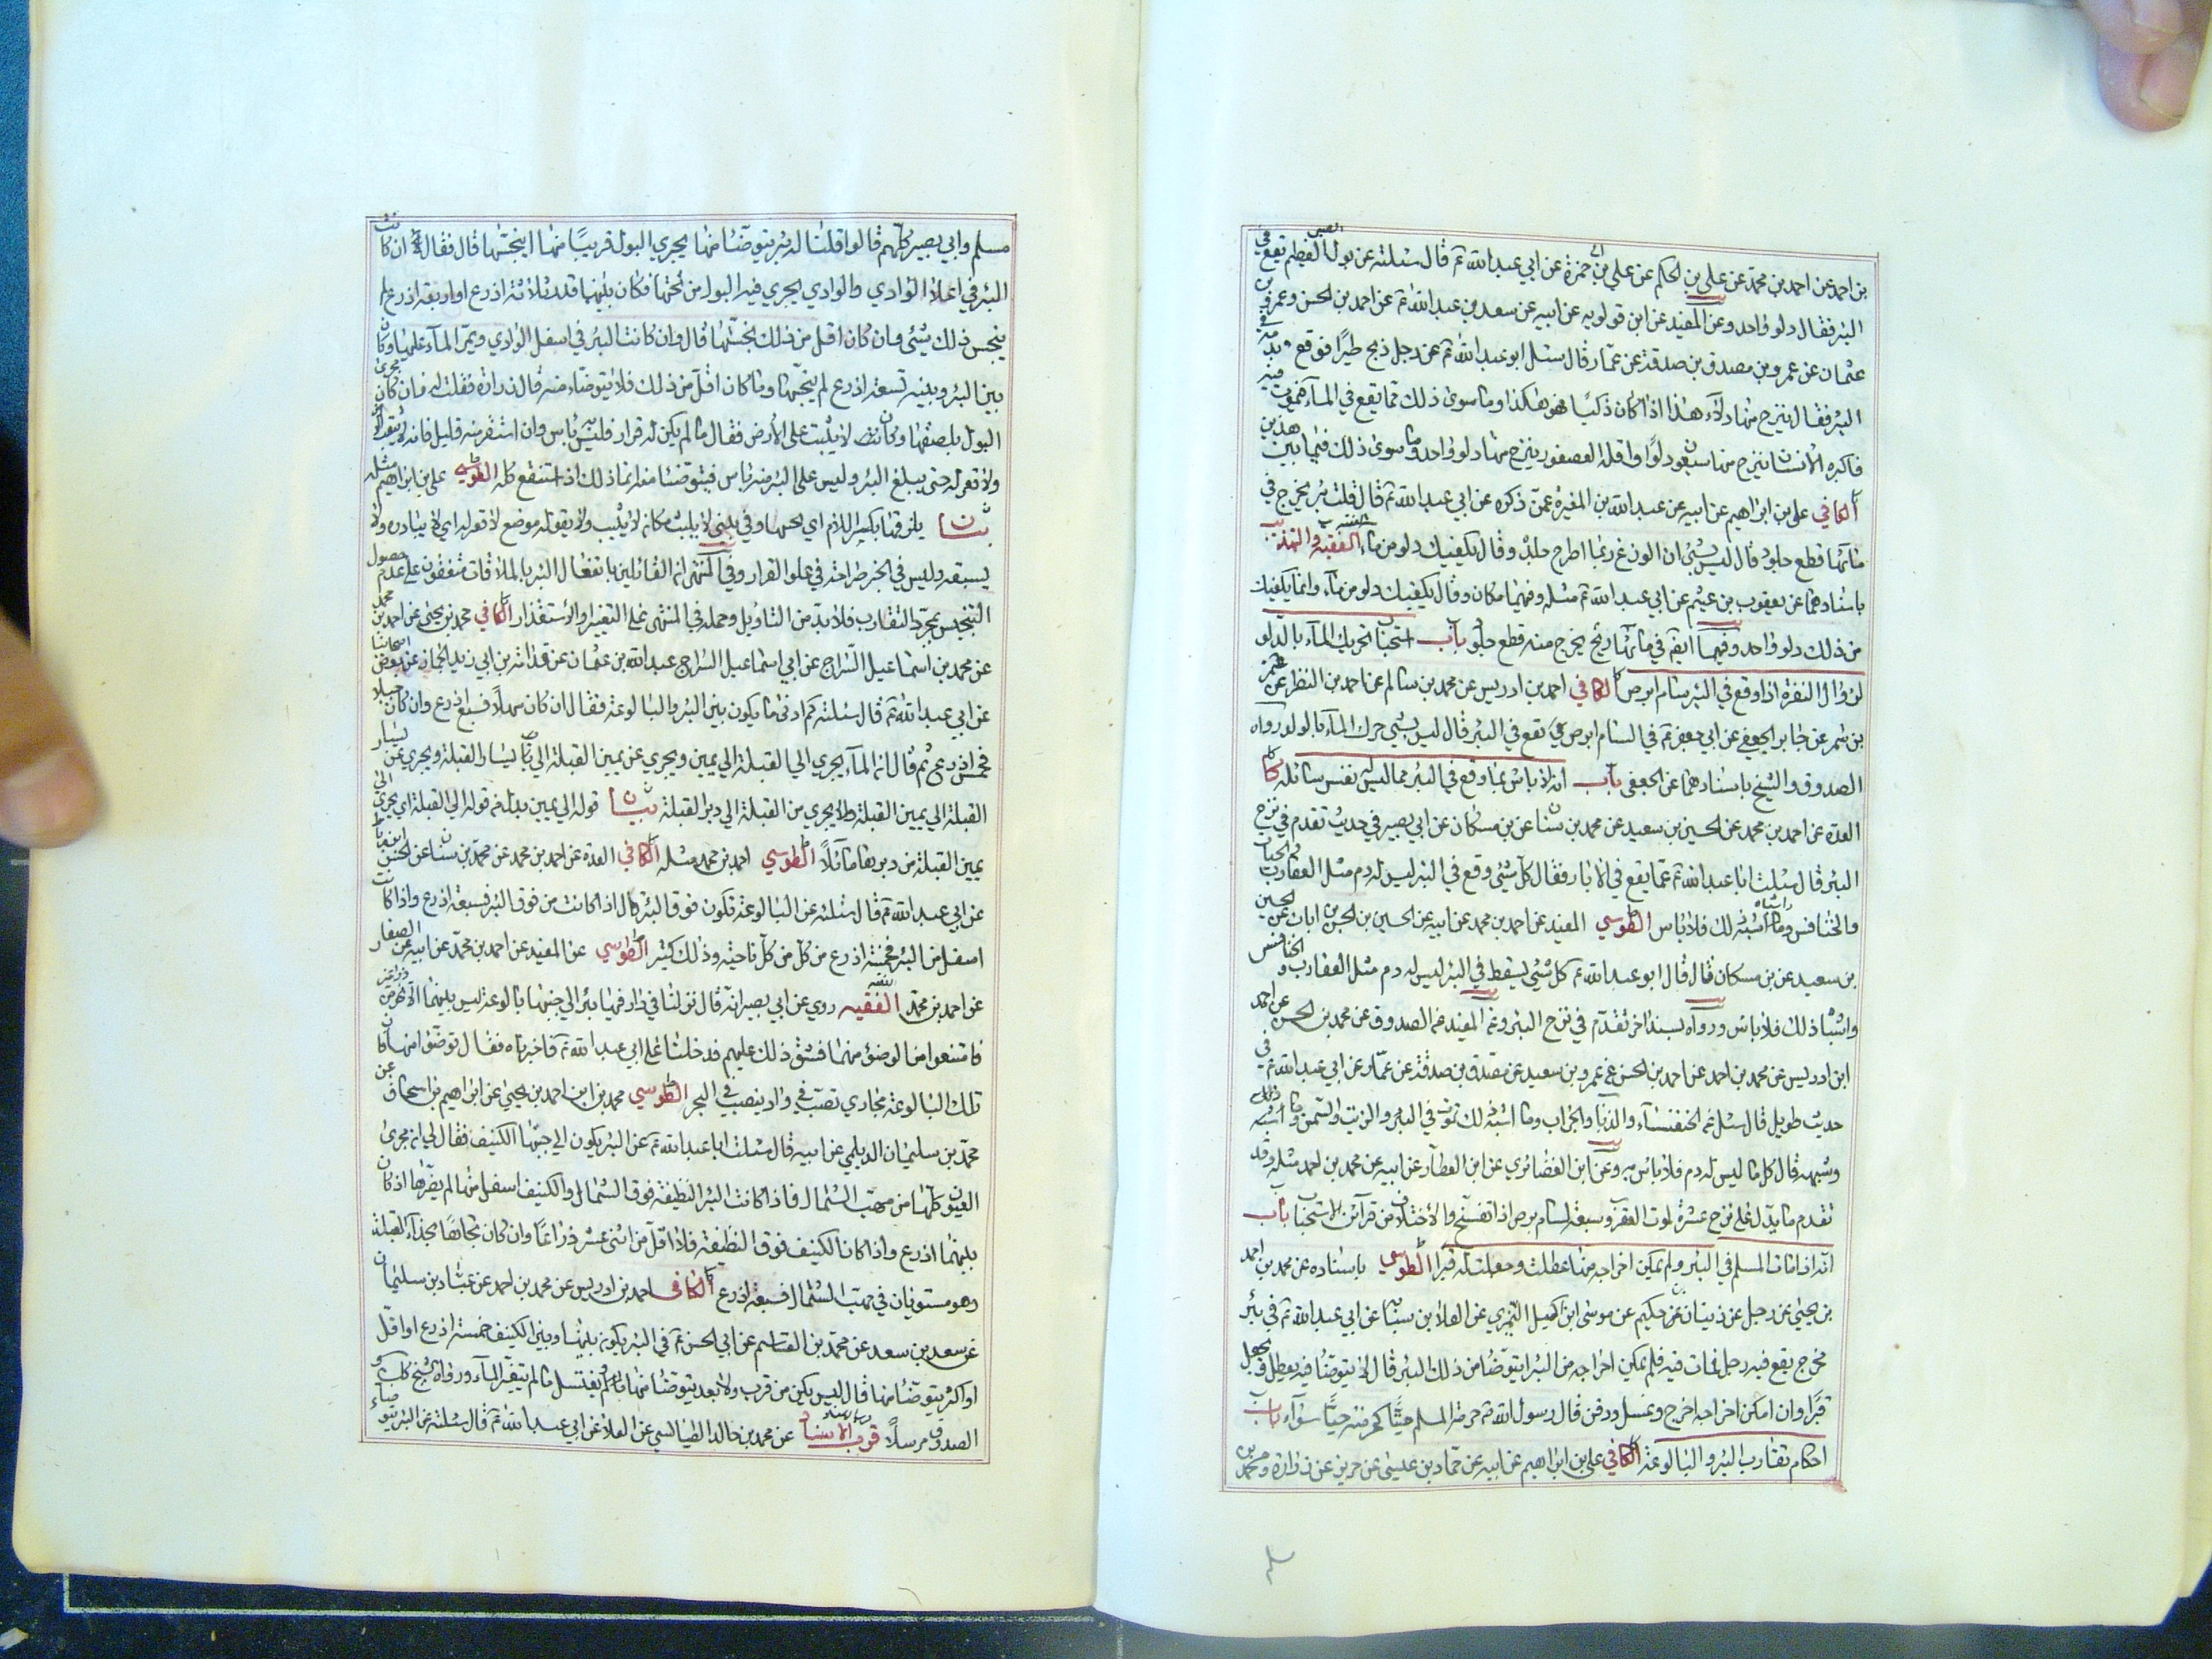 بن احمد عن احمد بن محمد عن علي بن الحكم عن علي بن ابي حمزة عن ابي عبد الله ع قال سئلته عن بول الصبي الفطيم تقع في
البئر فقال دلو واحد وعن المفيد عن ابن قولويه عن ابيه عن سعد بن عبد الله عن احمد بن الحسن وعمرو بن
عثمان عن عمرو بن مصدق بن صدقة عن عمار قال سئل ابو عبد الله ع عن رجل ذبح طيرا فوقع بدمه في
البئر فقال ينزح منها دلاء هذا اذا كان ذكيا فهو هكذا وما سوى ذلك مما يقع في الماء فيموت فيه
فاكبره الانسان ينزح منها سبعون دلوا واقله العصفور ينزح منها دلو واحد وما سوى ذلك فيما بين هذين
الكافي علي بن ابراهيم عن ابيه عن عبد الله بن المغيرة عمن ذكره عن ابي عبد الله ع قال قلت بئر يخرج في
مائها قطع جلود قال ليس بشئ ان الوزغ ربما اطرح جلده وقال يكفيك دلو من ماء الفقيه والتهذيب
باسنادهما عن يعقوب بن عيثم عن ابي عبد الله ع مثله وفيهما مكان وقال يكفيك دلو من ماء وانما يكفيك
من ذلك دلو واحد وفيهما ايضا في مائها ريح يخرج منه قطع جلود باب استحباب تحريك الماء بالدلو
لزوال النفرة اذا وقع في البئر سام ابرص الكافي احمد بن ادريس عن محمد بن سالم عن احمد بن النظر عن عمرو
بن شمر عن جابر الجعفي عن ابي جعفر ع في السام ابرص يقع في البئر قال ليس بشئ حرك الماء بالدلو ورواه
الصدوق والشيخ باسنادهما عن الجعفي باب انه لا باس بما وقع في البئر مما ليس له نفس سائلة كا
العدة عن احمد بن محمد عن الحسين بن سعيد عن محمد بن سنان عن بن مسكان عن ابي بصير في حديث تقدم في نزح
البئر قال سئلت ابا عبد الله ع عما يقع في الابار فقال كل شئ وقع في البئر ليس له دم مثل العقارب
والخنافس وما اشبه ذلك فلا باس الطوسي المفيد عن احمد بن محمد عن ابيه عن الحسين بن الحسن بن ابان عن الحسين
بن سعيد عن بن مسكان قال قال ابو عبد الله ع كل شئ يسقط في البئر ليس له دم مثل العقارب والخنافس
واشباه ذلك فلا باس ورواه بسند اخر تقدم في نزح البئر وعن المفيد عن الصدوق عن محمد بن الحسن عن احمد
ابن ادريس عن محمد بن احمد عن احمد بن الحسن عن عمرو بن سعيد عن مصدق بن صدقة عن عمار عن ابي عبد الله ع في
حديث طويل قال سئل عن الخنفساء والذباب والجراد وما اشبه ذلك تموت في البئر والزيت والسمن
وشبهه قال كل ما ليس له دم فلا باس به وعن ابن الغضائري عن ابن العطار عن ابيه عن محمد بن احمد مثله وقد
تقدم ما يدل على نزح عشرة لموت العقرب وسبعة لسام ابرص اذا تفسخ والاختلاف من قرائن الاستحباب باب
انه اذا مات المسلم في البئر ولم يمكن اخراجه منها عطلت وجعلت له قبرا الطوسي باسناده عن محمد بن احمد
بن يحيى عن رجل عن ذبيان عن حكيم عن موسى ابن اكيل النميري عن العلا بن سيابة عن ابي عبد الله ع في بئر
مخرج يقع فيه رجل فمات فيه فلم يمكن اخراجه من البئر ايتوضا من ذلك البئر قال لا يتوضا فيه يعطل ويجعل
قبرا وان امكن اخراجه اخرج وغسل ودفن قال رسول الله ص حرمة المسلم ميتا كحرمته حيا سواء باب
احكام تقارب البئر والبالوعة الكافي علي بن ابراهيم عن ابيه عن حماد بن عيسى عن حريز عن زرارة ومحمد بن
مسلم وابي بصير كلهم قالوا قلنا له بئر يتوضا منها يجري البول قريبا منها اينجسها قال فقال ان كانت
البئر في اعلا الوادي والوادي يجري فيه البول من تحتها فكان بينهما قدر ثلاثة اذرع او اربعة اذرع لم
ينجس ذلك شئ وان كان اقل من ذلك نجستها قال وان كانت البئر في اسفل الوادي ويمر الماء عليها وكان
بين البئر وبينه تسعة اذرع لم ينجسها وما كان اقل من ذلك فلا يتوضاء منه قال زرارة فقلت له فان كان مجرى
البول بلصقها وكان لا يثبت على الارض فقال ما لم يكن له قرار فليس به باس وان استقر منه قليل فانه لا يثقب الارض
ولا قعر له حتى يبلغ البئر وليس على البئر منه باس فيتوضا منه انما ذلك اذا استنقع كله الطوسي علي بن ابراهيم مثله
بيان
يسبقه وليس في الخبر صراحة في علو القرار وفي المنتهى ان القائلين بانفعال البئر بالملاقات متفقون على عدم حصول
التنجيس بمجرد التقارب فلا بد من التاويل وحمله في المنتهى على التغيير والاستقذار الكافي محمد بن يحيى عن احمد بن محمد
عن محمد بن اسماعيل السراج عن ابي اسماعيل السراج عبد الله بن عثمان عن قدامة بن ابي زيد الجماز عن بعض اصحابنا
عن ابي عبد الله ع قال سئلته كم ادنى ما يكون بين البئر والبالوعة فقال ان كان سهلا فسبع اذرع وان كان جبلا
فخمس اذرع ثم قال ان الماء يجري الى القبلة الى يمين ويجري عن يمين القبلة الى يسار القبلة ويجري عن يسار
القبلة الى يمين القبلة ولا يجري من القبلة الى دبر القبلة بيان قوله الى يمين بدل من قوله الى القبلة اي يجري الى
يمين القبلة من دبرها مائلا الطوسي احمد بن محمد مثله الكافي العدة عن احمد بن محمد عن محمد بن سنان عن الحسن ابن رباط
عن ابي عبد الله ع قال سئلته عن البالوعة تكون فوق البئر قال اذا كانت من فوق البئر فسبعة اذرع واذا كانت
اسفل من البئر فخمسة اذرع من كل من كل ناحية وذلك كثير الطوسي عن المفيد عن احمد بن محمد عن ابيه عن الصفار
عن احمد بن محمد الفقيه روي عن ابي بصير انه قال نزلنا في دار فيها بئر الى جنبها بالوعة ليس بينهما الا نحو من ذراعين
فامتنعوا من الوضوء منها فشق ذلك عليهم فدخلنا على ابي عبد الله ع فاخبرناه فقال توضؤا منها فان
تلك البالوعة مجاري تصب في واد ينصب في البحر الطوسي محمد بن احمد بن يحيى عن ابراهيم بن اسحاق عن
محمد بن سليمان الديلمي عن ابيه قال سئلت ابا عبد الله ع عن البئر يكون الى جنبها الكنيف فقال لي ان مجرى
العيون كلها من مهب الشمال فاذا كانت البئر النظيفة فوق الشمال والكنيف اسفل منها لم يضرها اذا كان
بينهما اذرع واذا كان الكنيف فوق النظيفة فلا اقل من اثني عشر ذراعا وان كان تجاهها بحذاء القبلة
وهو مستويان في مهب الشمال فسبعة اذرع الكافي احمد بن ادريس عن محمد بن احمد عن عباد بن سليمان
عن سعد بن سعد عن محمد بن القاسم عن ابي الحسن ع في البئر يكون بينها وبين الكنيف خمسة اذرع او اقل
او اكثر يتوضا منها قال ليس يكره من قرب ولا بعد يتوضا منها ويغتسل ما لم يتغير الماء ورواه الشيخ كك و
الصدوق مرسلا قرب الاسناد عن محمد بن خالد الطيالسي عن العلا عن ابي عبد الله ع قال سئلته عن البئر يتوضاء